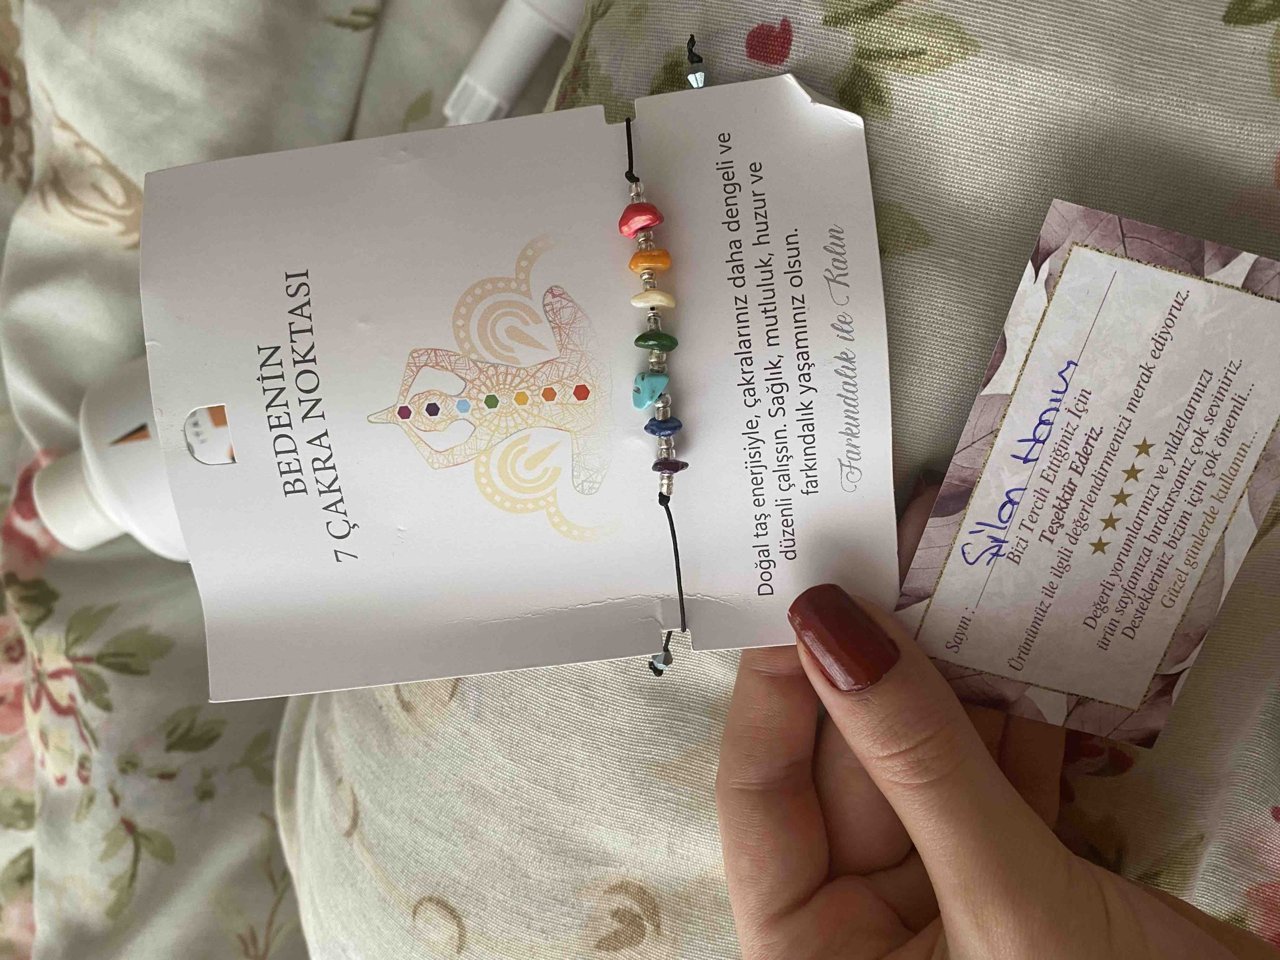 BEDENİN
7 ÇAKRA NOKTASI
Doğal taş enerjisiyle, çakralarınız daha dengeli ve
düzenli çalışsın. Sağlık, mutluluk, huzur ve
farkındalık yaşamınız olsun.
Farkındalık ile Kalın
Sayın: Şilan Hanım
Bizi Tercih Ettiğiniz İçin
Teşekkür Ederiz.
Ürünümüz ile ilgili değerlendirmenizi merak ediyoruz.
Değerli yorumlarınızı ve yıldızlarınızı
ürün sayfamıza bırakırsanız çok seviniriz.
Destekleriniz bizim için çok önemli...
Güzel günlerde kullanın...